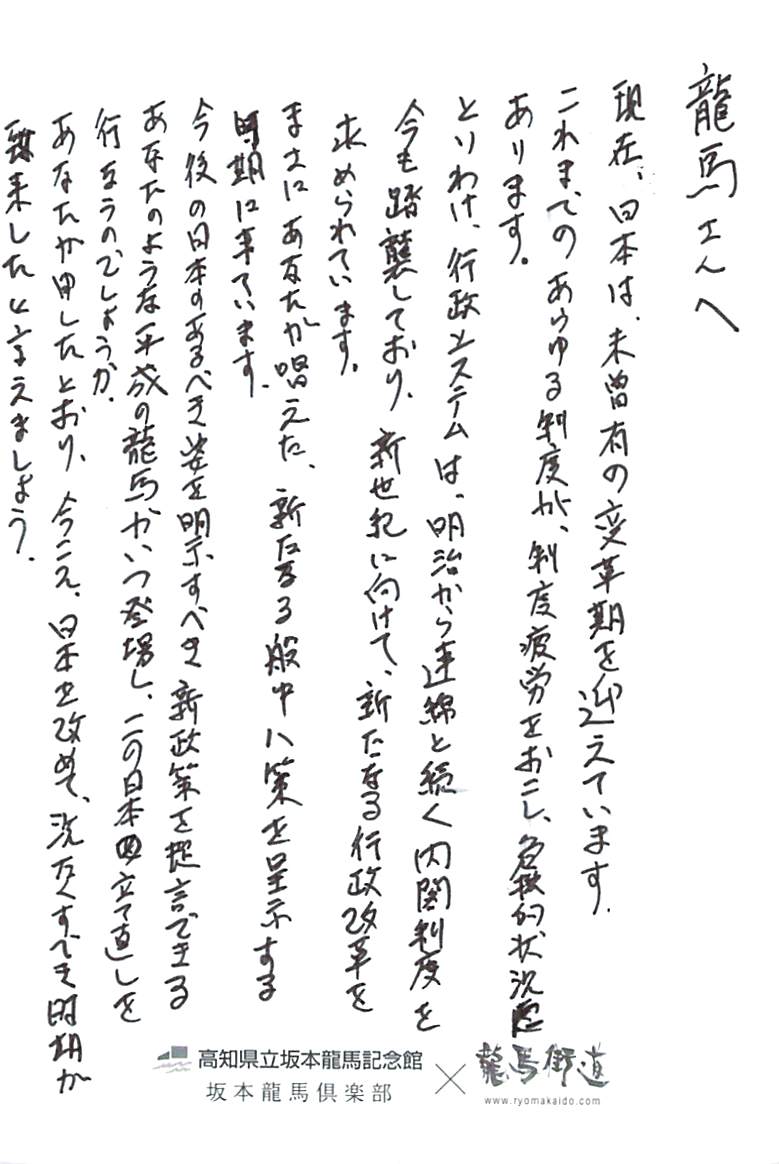 龍馬さんへ
現在、日本は、未曾有の変革期を迎えています。
これまでの あらゆる制度が、制度疲労をおこし、危機的状況に
あります。
とりわけ、行政システムは、明治から連綿と続く内閣制度を
今も踏襲しており、新世紀に向けて、新たなる行政改革を
求められています。
まさにあなたが唱えた、新たなる船中八策を呈示する
時期に来ています。
今後の日本のあるべき姿を明示すべき新政策を提言できる
あなたのような平成の龍馬がいつ登場し、この日本の立て直しを
行なうのでしょうか。
あなたが申したとおり、今こそ、日本を改めて、洗たくすべき時期が
到来したと言えましょう。
高知県立坂本龍馬記念館
坂本龍馬倶楽部
×
龍馬街道
www.ryomakaido.com